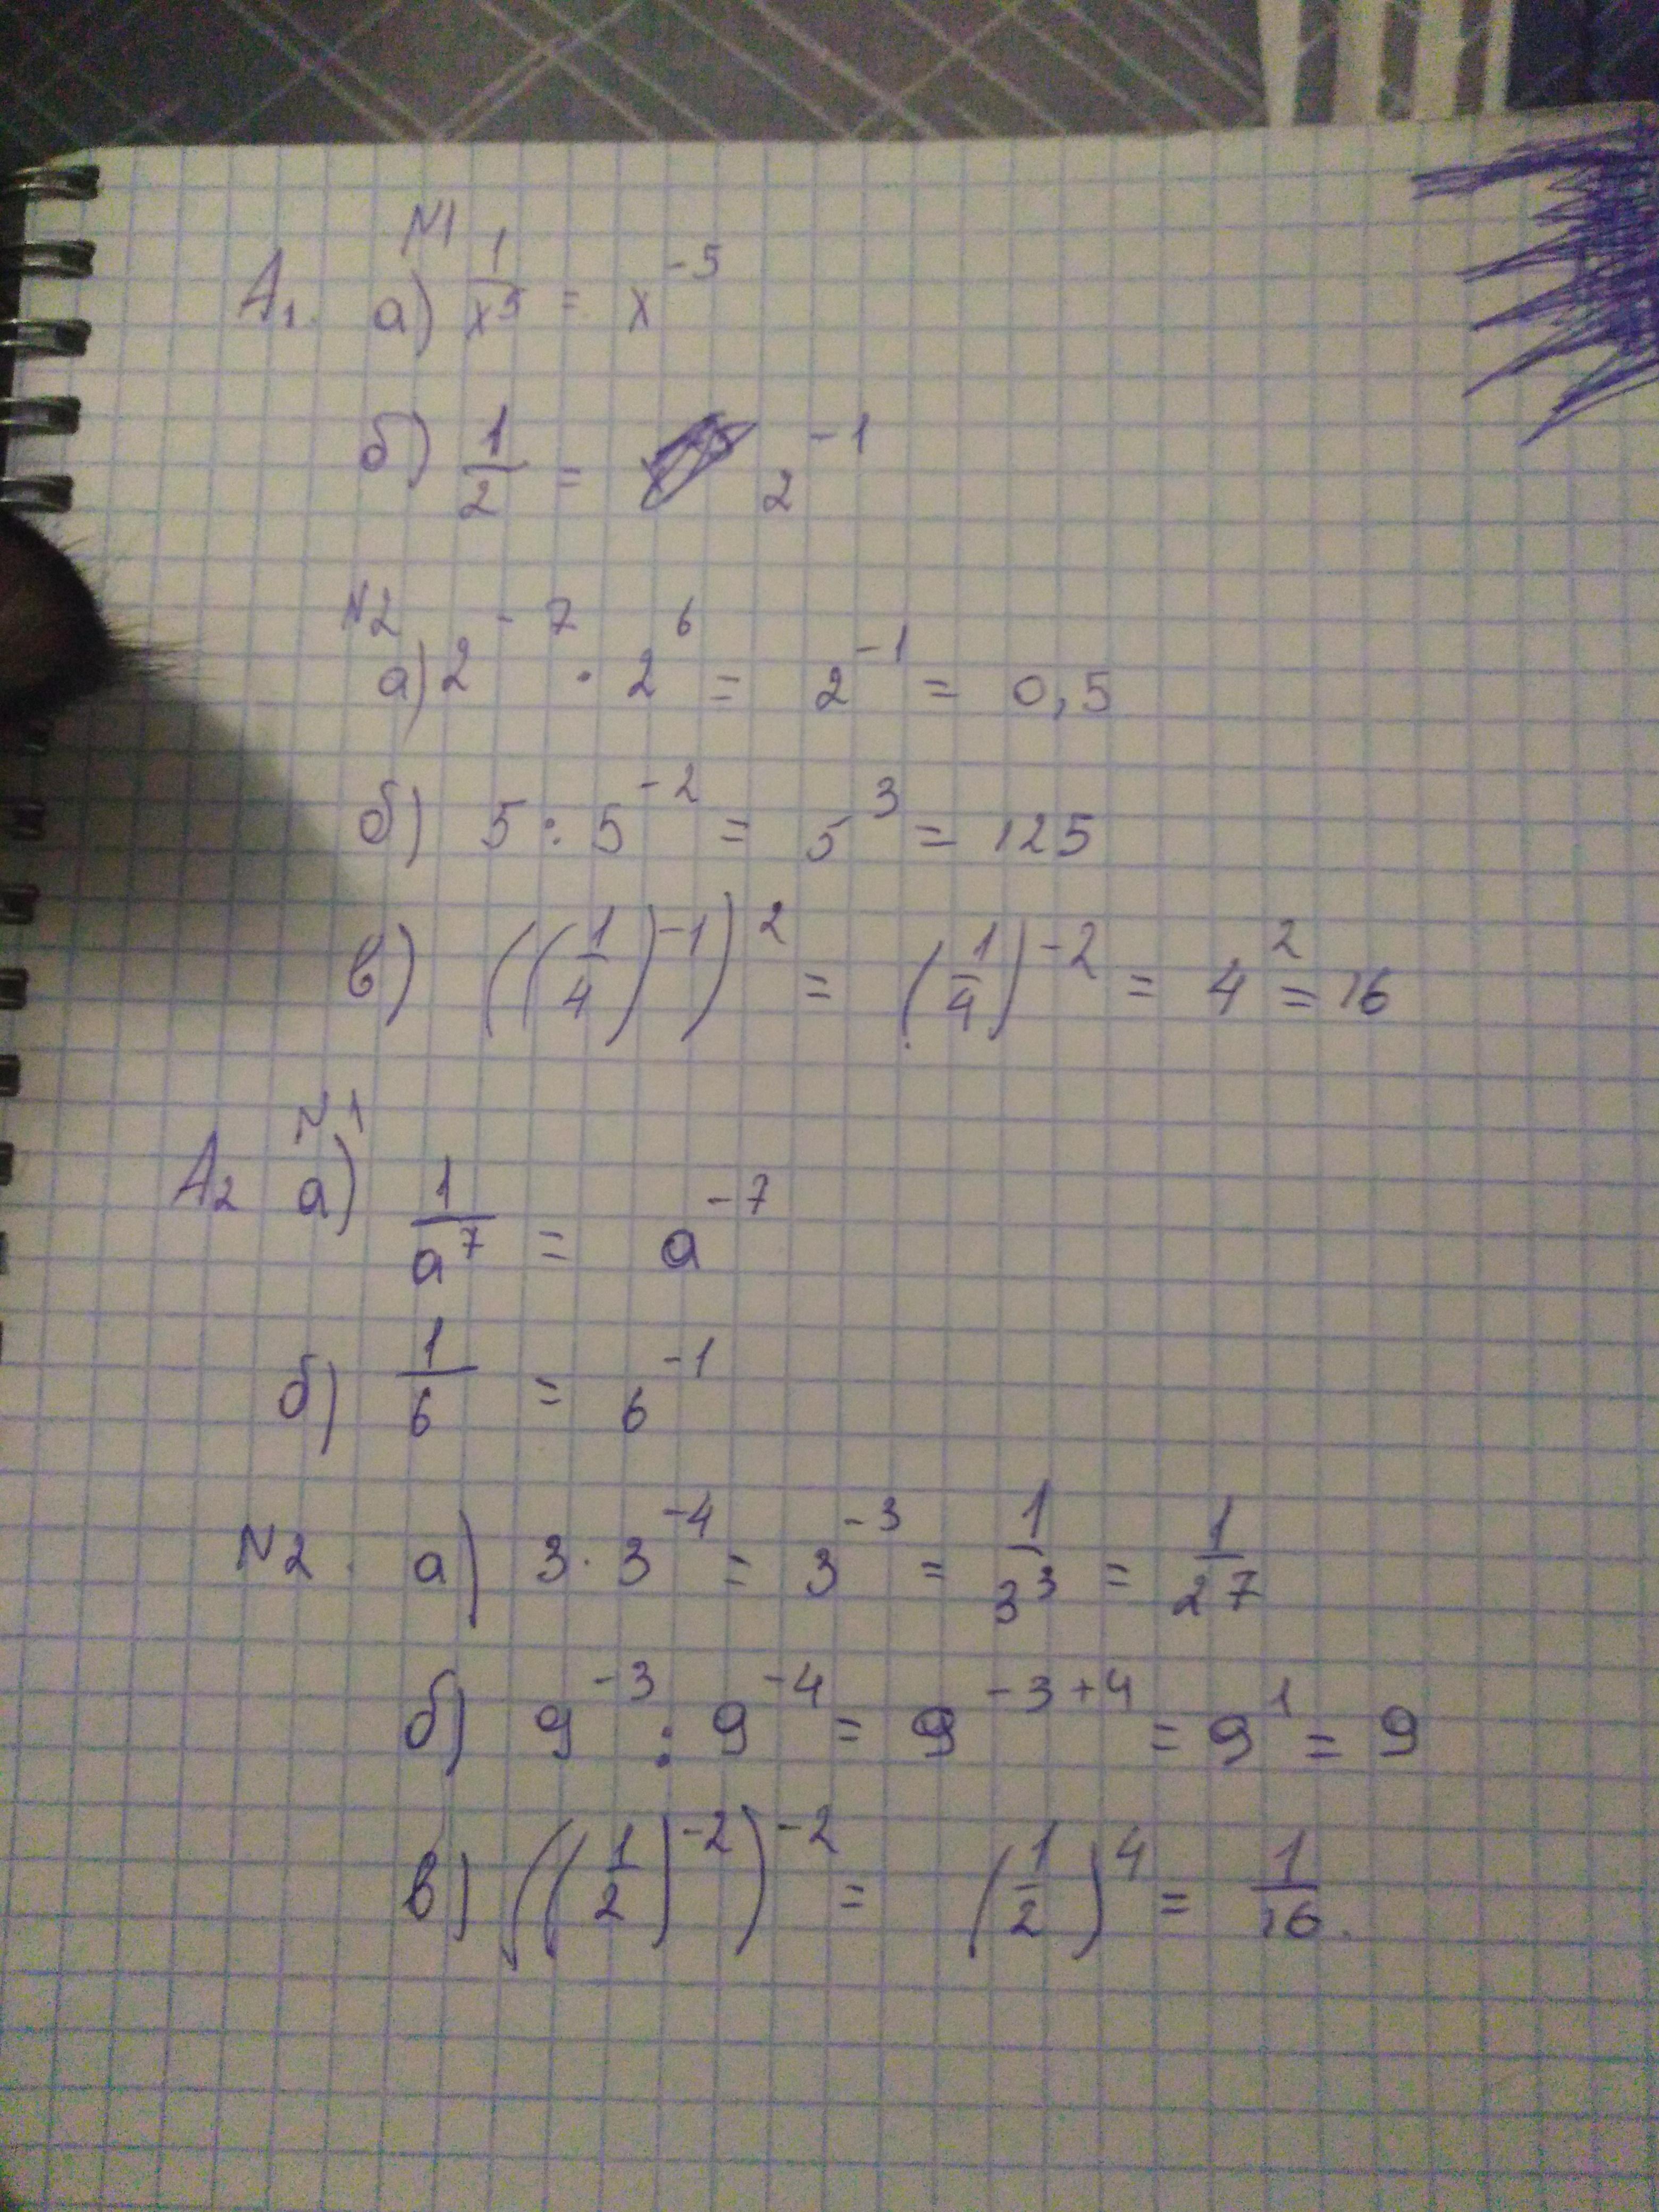 N1
A₁. а) 1/x⁵ = x⁻⁵
б) 1/2 = 2⁻¹
N2
а) 2⁻⁷ · 2⁶ = 2⁻¹ = 0,5
б) 5 : 5⁻² = 5³ = 125
в) ((1/4)⁻¹)² = (1/4)⁻² = 4² = 16
N1
A₂ а) 1/a⁷ = a⁻⁷
б) 1/6 = 6⁻¹
N2. а) 3 · 3⁻⁴ = 3⁻³ = 1/3³ = 1/27
б) 9⁻³ : 9⁻⁴ = 9⁻³⁺⁴ = 9¹ = 9
в) ((1/2)⁻²)⁻² = (1/2)⁴ = 1/16.